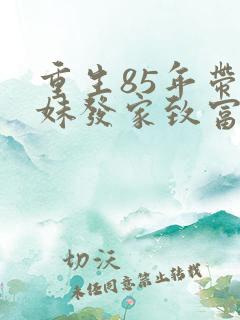 重生85年带
妹發家致富
切沃
未经同意禁止转载